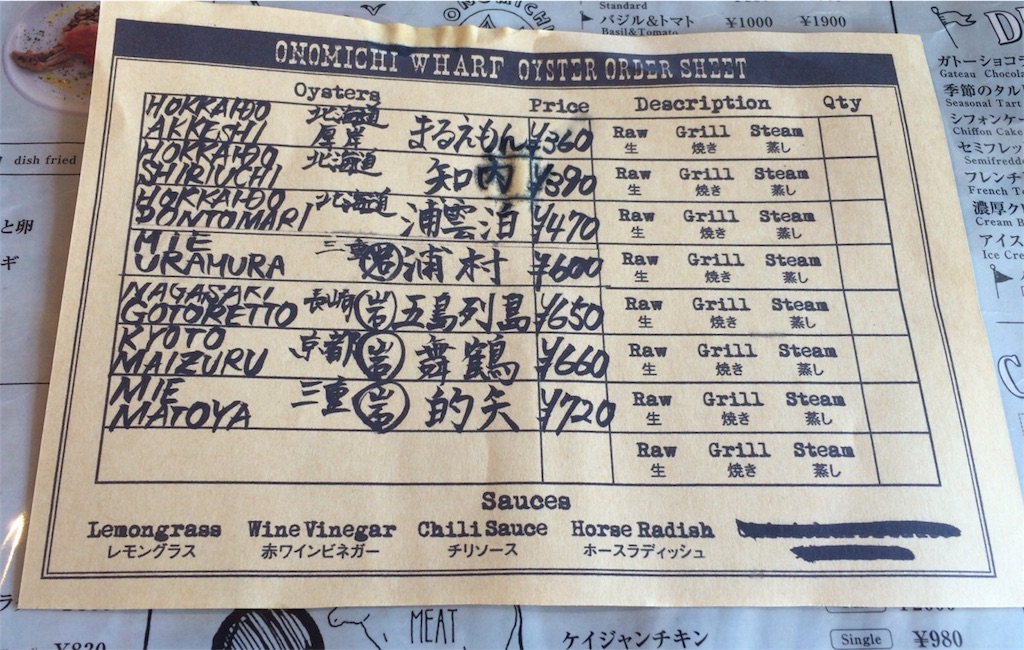 Standard
バジル&トマト ¥1000 ¥1900
Basil&Tomato
ONOMICHI
dish fried
と卵
ギ
ガトーショコラ
Gateau Chocola
季節のタル
Seasonal Tart
シフォンケー
Chiffon Cake
セミフレッ
Semifreddo
フレンチ
French T
濃厚ク
Cream B
アイス
Ice Cre
ONOMICHI WHARF OYSTER ORDER SHEET
Oysters Price Description Qty
HOKKAIDO 北海道
AKKESHI 厚岸 まるえもん ¥360 Raw Grill Steam
生 焼き 蒸し
HOKKAIDO 北海道
SHIRIUCHI 知内 ¥390 Raw Grill Steam
生 焼き 蒸し
HOKKAIDO 北海道
PONTOMARI 浦雲泊 ¥470 Raw Grill Steam
生 焼き 蒸し
MIE 三重
URAMURA 浦村 ¥600 Raw Grill Steam
生 焼き 蒸し
NAGASAKI 長崎
GOTORETTO 岩 五島列島 ¥650 Raw Grill Steam
生 焼き 蒸し
KYOTO 京都
MAIZURU 岩 舞鶴 ¥660 Raw Grill Steam
生 焼き 蒸し
MIE 三重
MATOYA 岩 的矢 ¥720 Raw Grill Steam
生 焼き 蒸し
Raw Grill Steam
生 焼き 蒸し
Sauces
Lemongrass Wine Vinegar Chili Sauce Horse Radish
レモングラス 赤ワインビネガー チリソース ホースラディッシュ
¥830
MEAT
ケイジャンチキン
Single ¥980